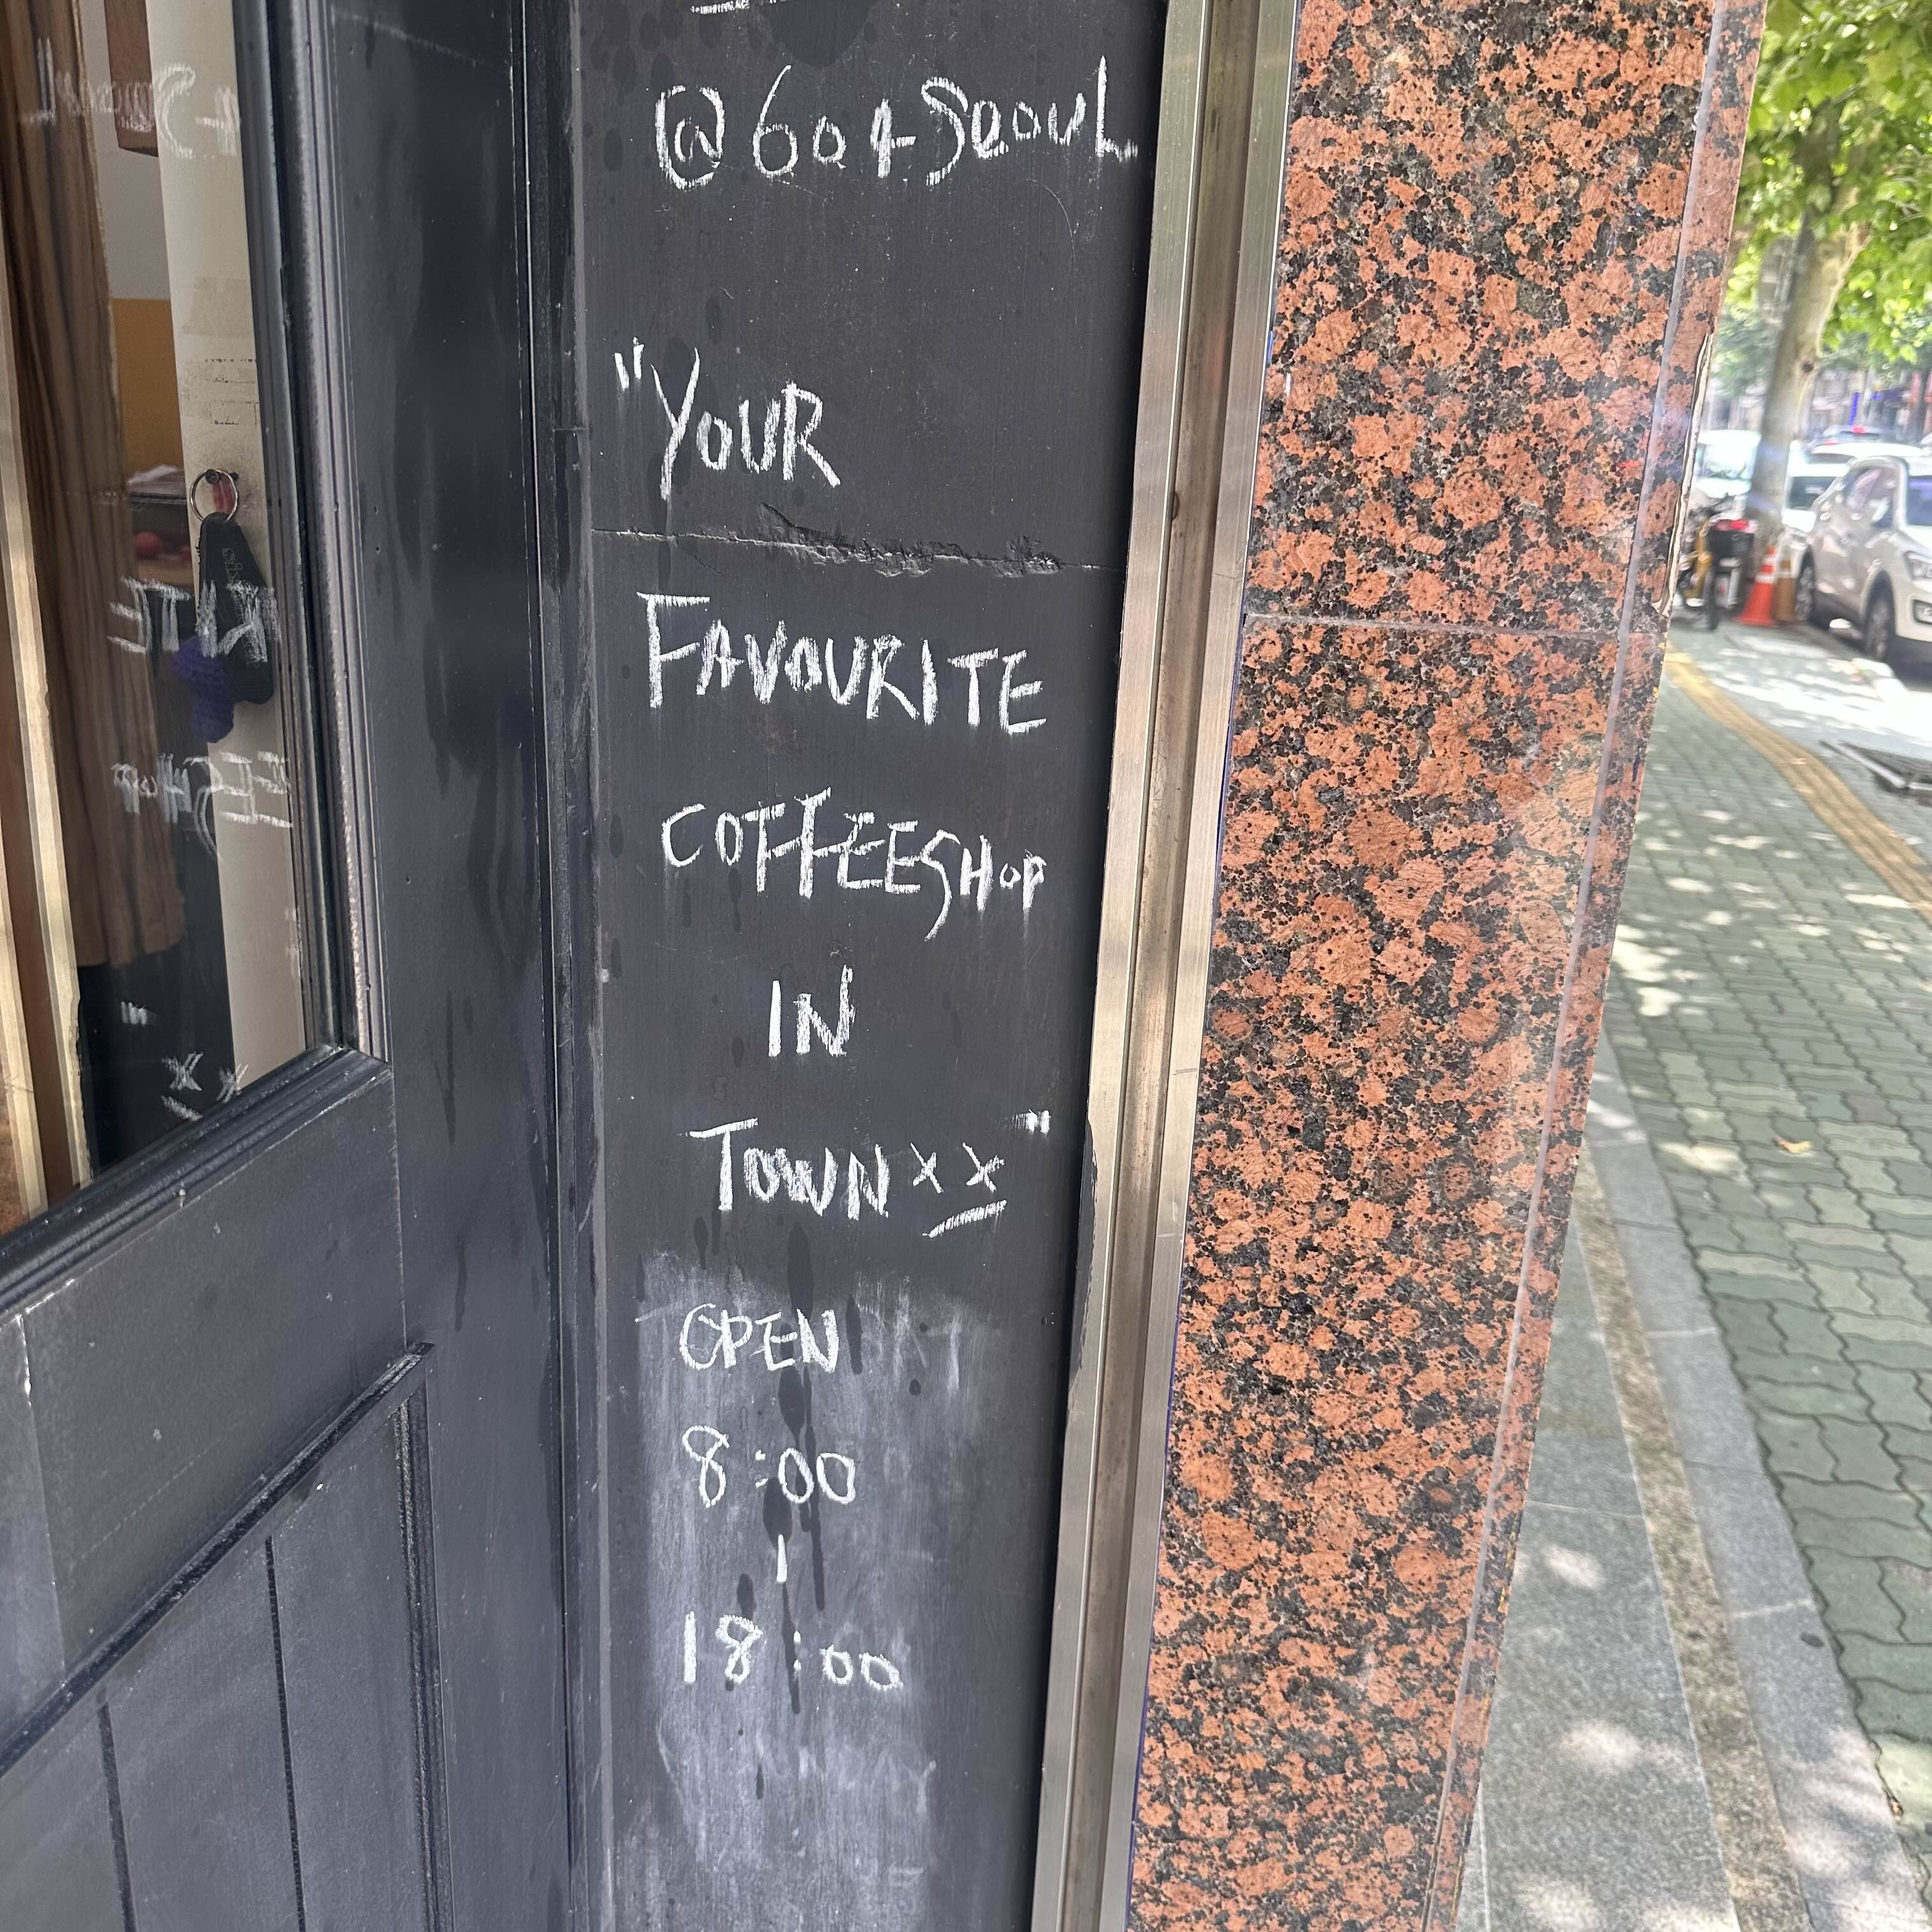 @604SeouL
"YOUR
FAVOURITE
COFFEESHOP
IN
TOWN xx"
OPEN
8:00
|
18:00